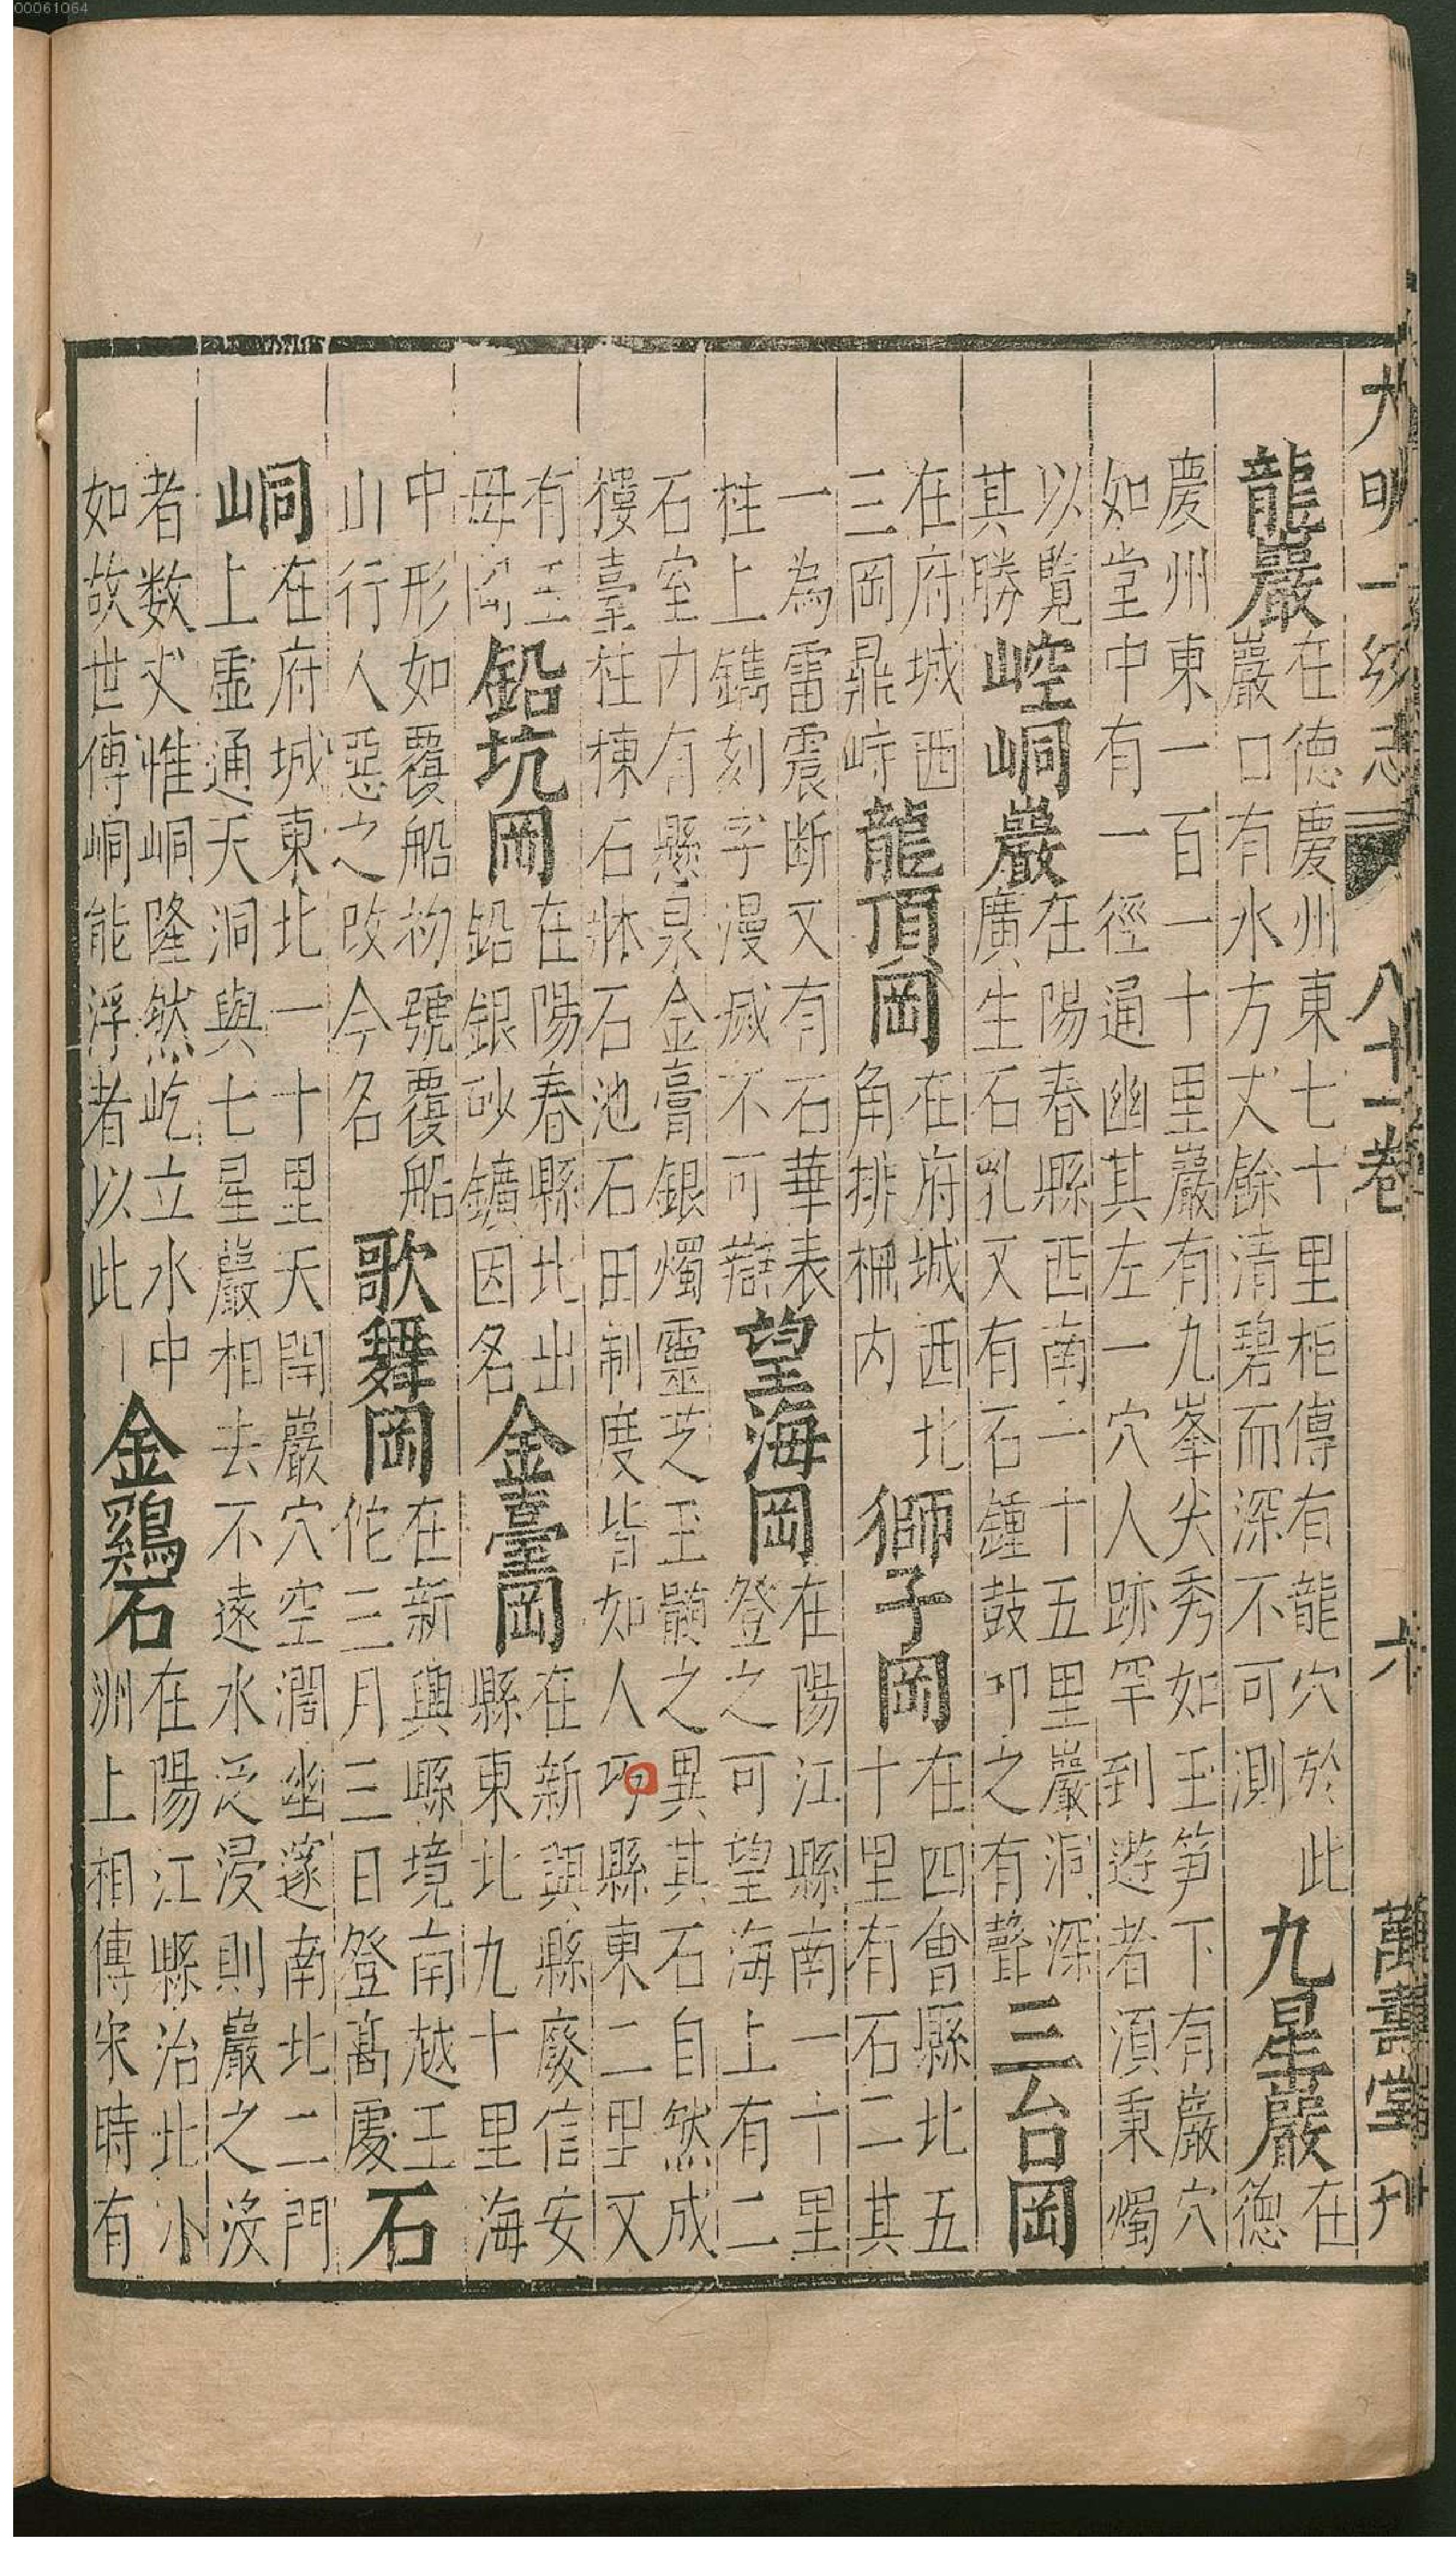 大明一統志 八十一卷 六 萬壽堂刊
龍巖
在德慶州東七十里柜傳有龍穴於此
巖口有水方丈餘清碧而深不可測
九星巖
在
德
慶州東一百一十里巖有九峯尖秀如玉笋下有巖穴
如堂中有一徑通幽其左一穴人跡罕到遊者須秉燭
以覽
其勝
崆峒巖
在陽春縣西南二十五里巖洞深
廣生石乳又有石鍾鼓叩之有聲
三台岡
在府城西
三岡鼎峙
龍頂岡
在府城西北
角排柵内
獅子岡
在四會縣北五
十里有石二其
一為雷震断又有石華表
柱上鐫刻字漫滅不可辯
望海岡
在陽江縣南一十里
登之可望海上有二
石室内有懸泉金膏銀燭靈芝玉髓之異其石自然成
樓臺柱棟石牀石池石田制度皆如人巧縣東二里又
有玉
毋岡
鉛坑岡
在陽春縣北出
鉛銀砂鑛因名
金臺岡
在新興縣廢信安
縣東北九十里海
中形如覆船初號覆船
山行人惡之改今名
歌舞岡
在新興縣境南越王
佗三月三日登髙處
石
峒
在府城東北一十里天開巖穴空濶幽邃南北二門
上虛通天洞與七星巖相去不遠水泛浸則巖之沒
者数丈惟峒隆然屹立水中
如故世傳峒能浮者以此
金鷄石
在陽江縣治北小
洲上相傳宋時有
00061064